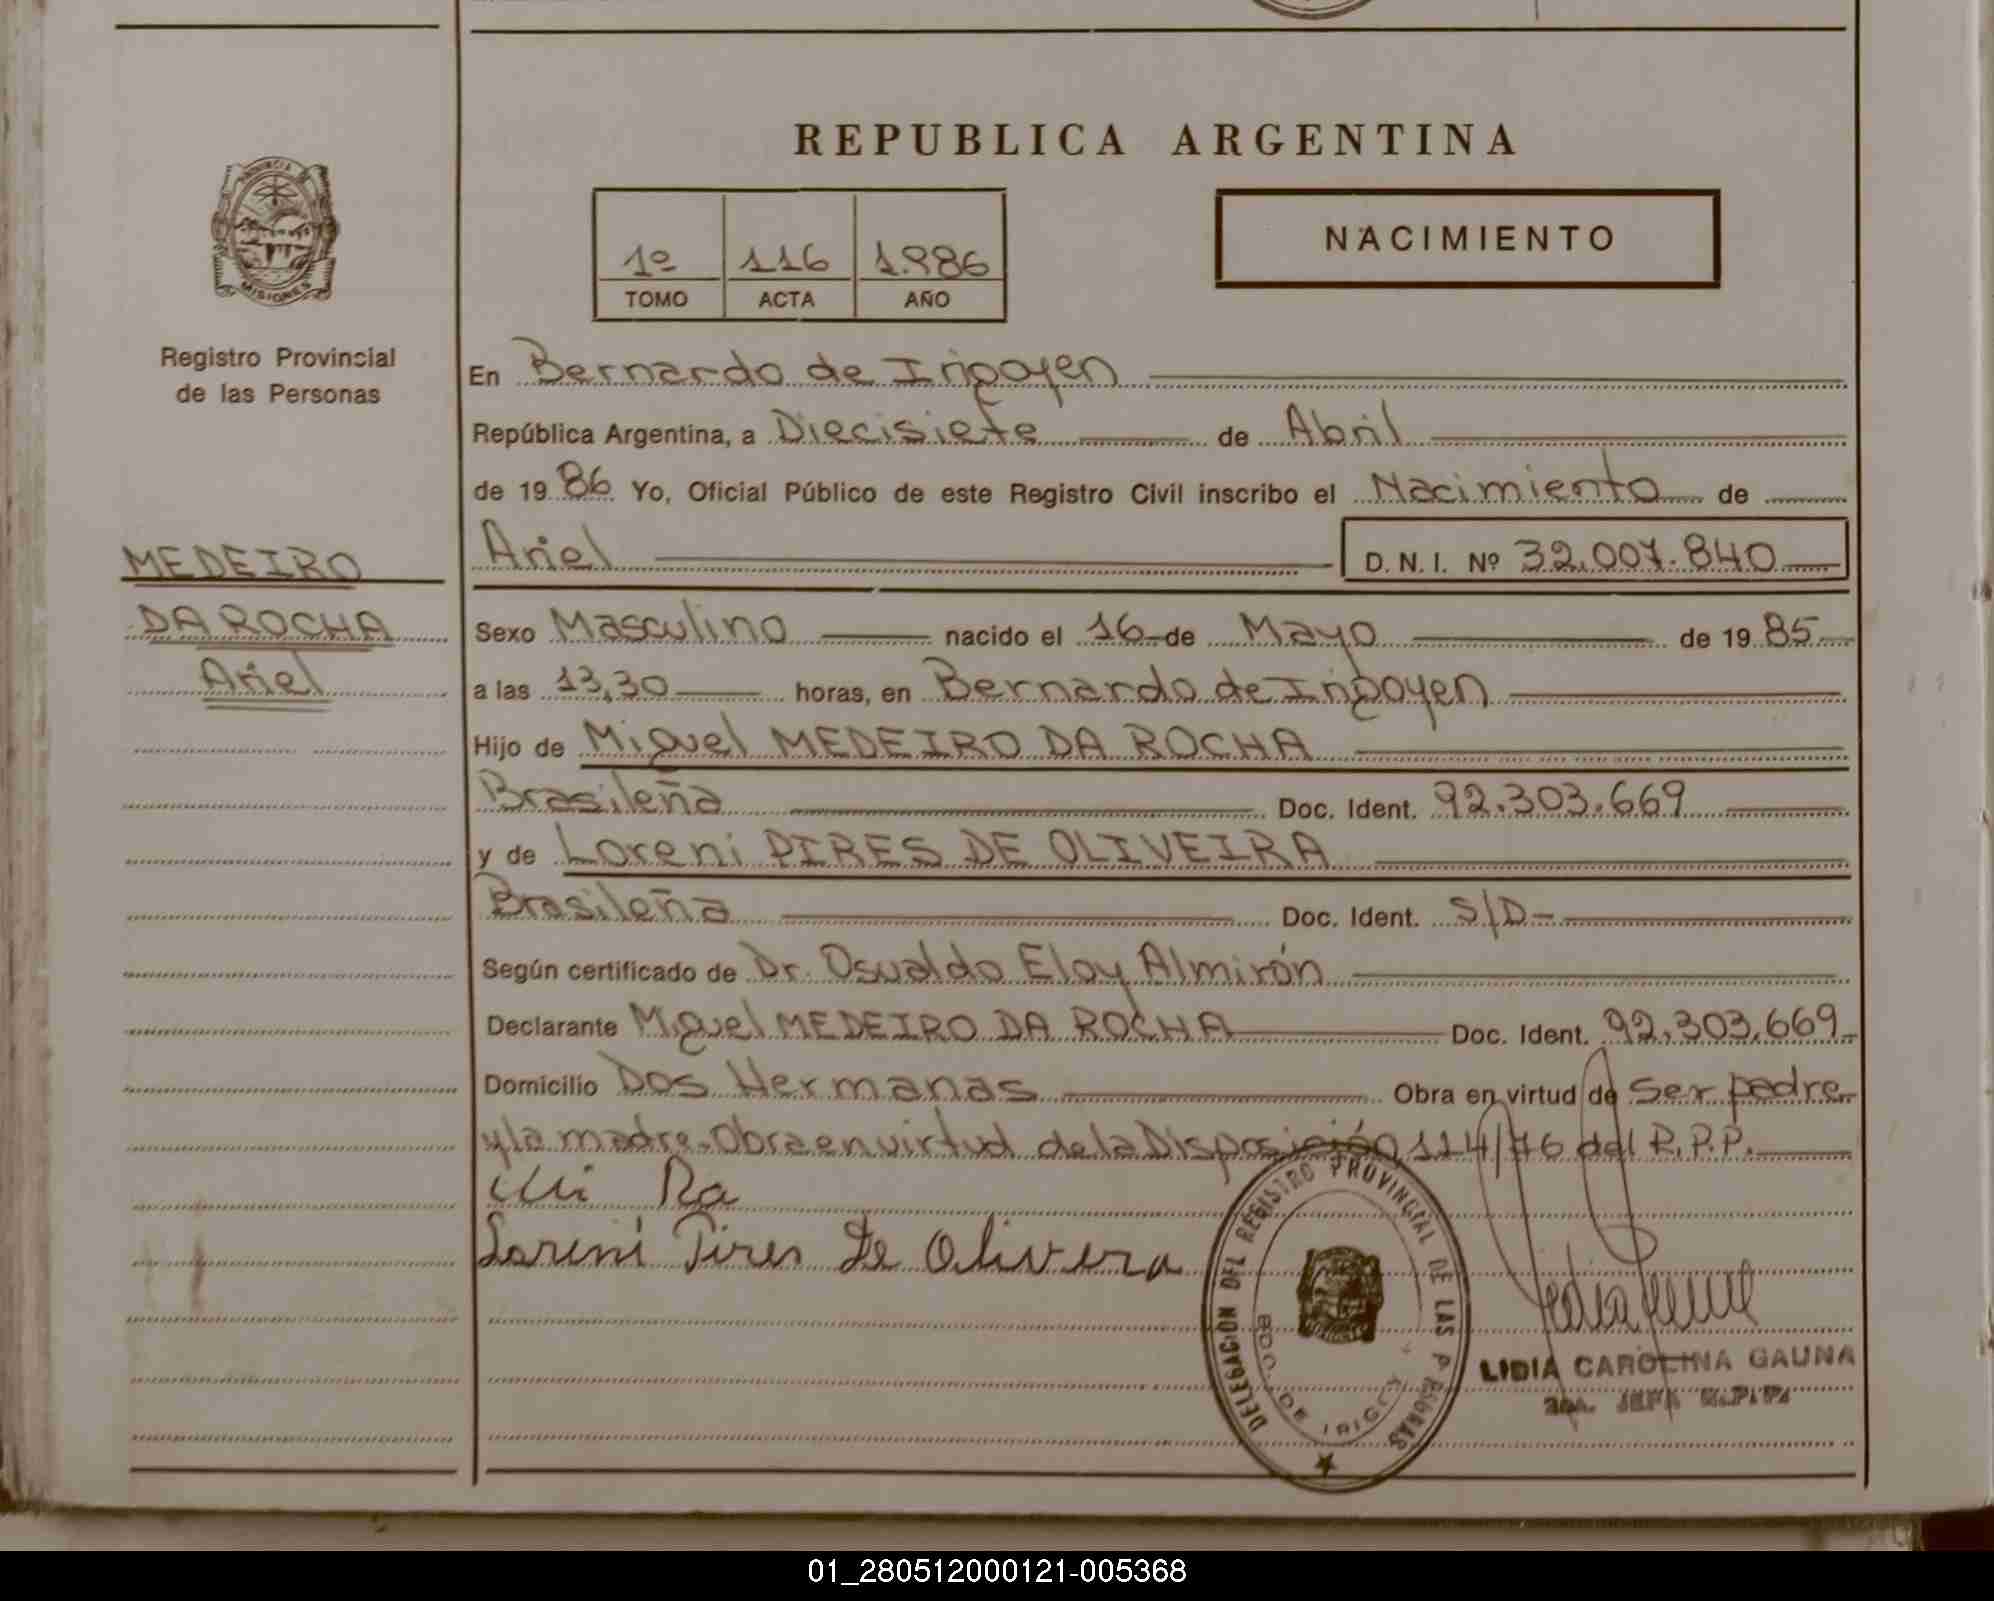 REPUBLICA ARGENTINA
PROVINCIA
MISIONES
Registro Provincial
de las Personas
1º 116 1.986
TOMO ACTA AÑO
NACIMIENTO
En Bernardo de Irigoyen
República Argentina, a Diecisiete de Abril
de 19 86 Yo, Oficial Público de este Registro Civil inscribo el Nacimiento de
MEDEIRO
DA ROCHA
Ariel
Ariel D.N.I. Nº 32.007.840
Sexo Masculino nacido el 16 de Mayo de 19 85
a las 13,30 horas, en Bernardo de Irigoyen
Hijo de Miguel MEDEIRO DA ROCHA
Brasileña Doc. Ident. 92.303.669
y de Loreni PIRES DE OLIVEIRA
Brasileña Doc. Ident. S/D-
Según certificado de Dr. Osvaldo Eloy Almirón
Declarante Miguel MEDEIRO DA ROCHA Doc. Ident. 92.303.669
Domicilio Dos Hermanas Obra en virtud de ser padre
y la madre. Obra en virtud de la Disposición 114/76 del R.P.P.
Loreni Pires De Olivera
DELEGACIÓN DEL REGISTRO PROVINCIAL DE LAS PERSONAS
BDO. DE IRIGOYEN
LIDIA CAROLINA GAUNA
JEFA R.P.P.
01_280512000121-005368